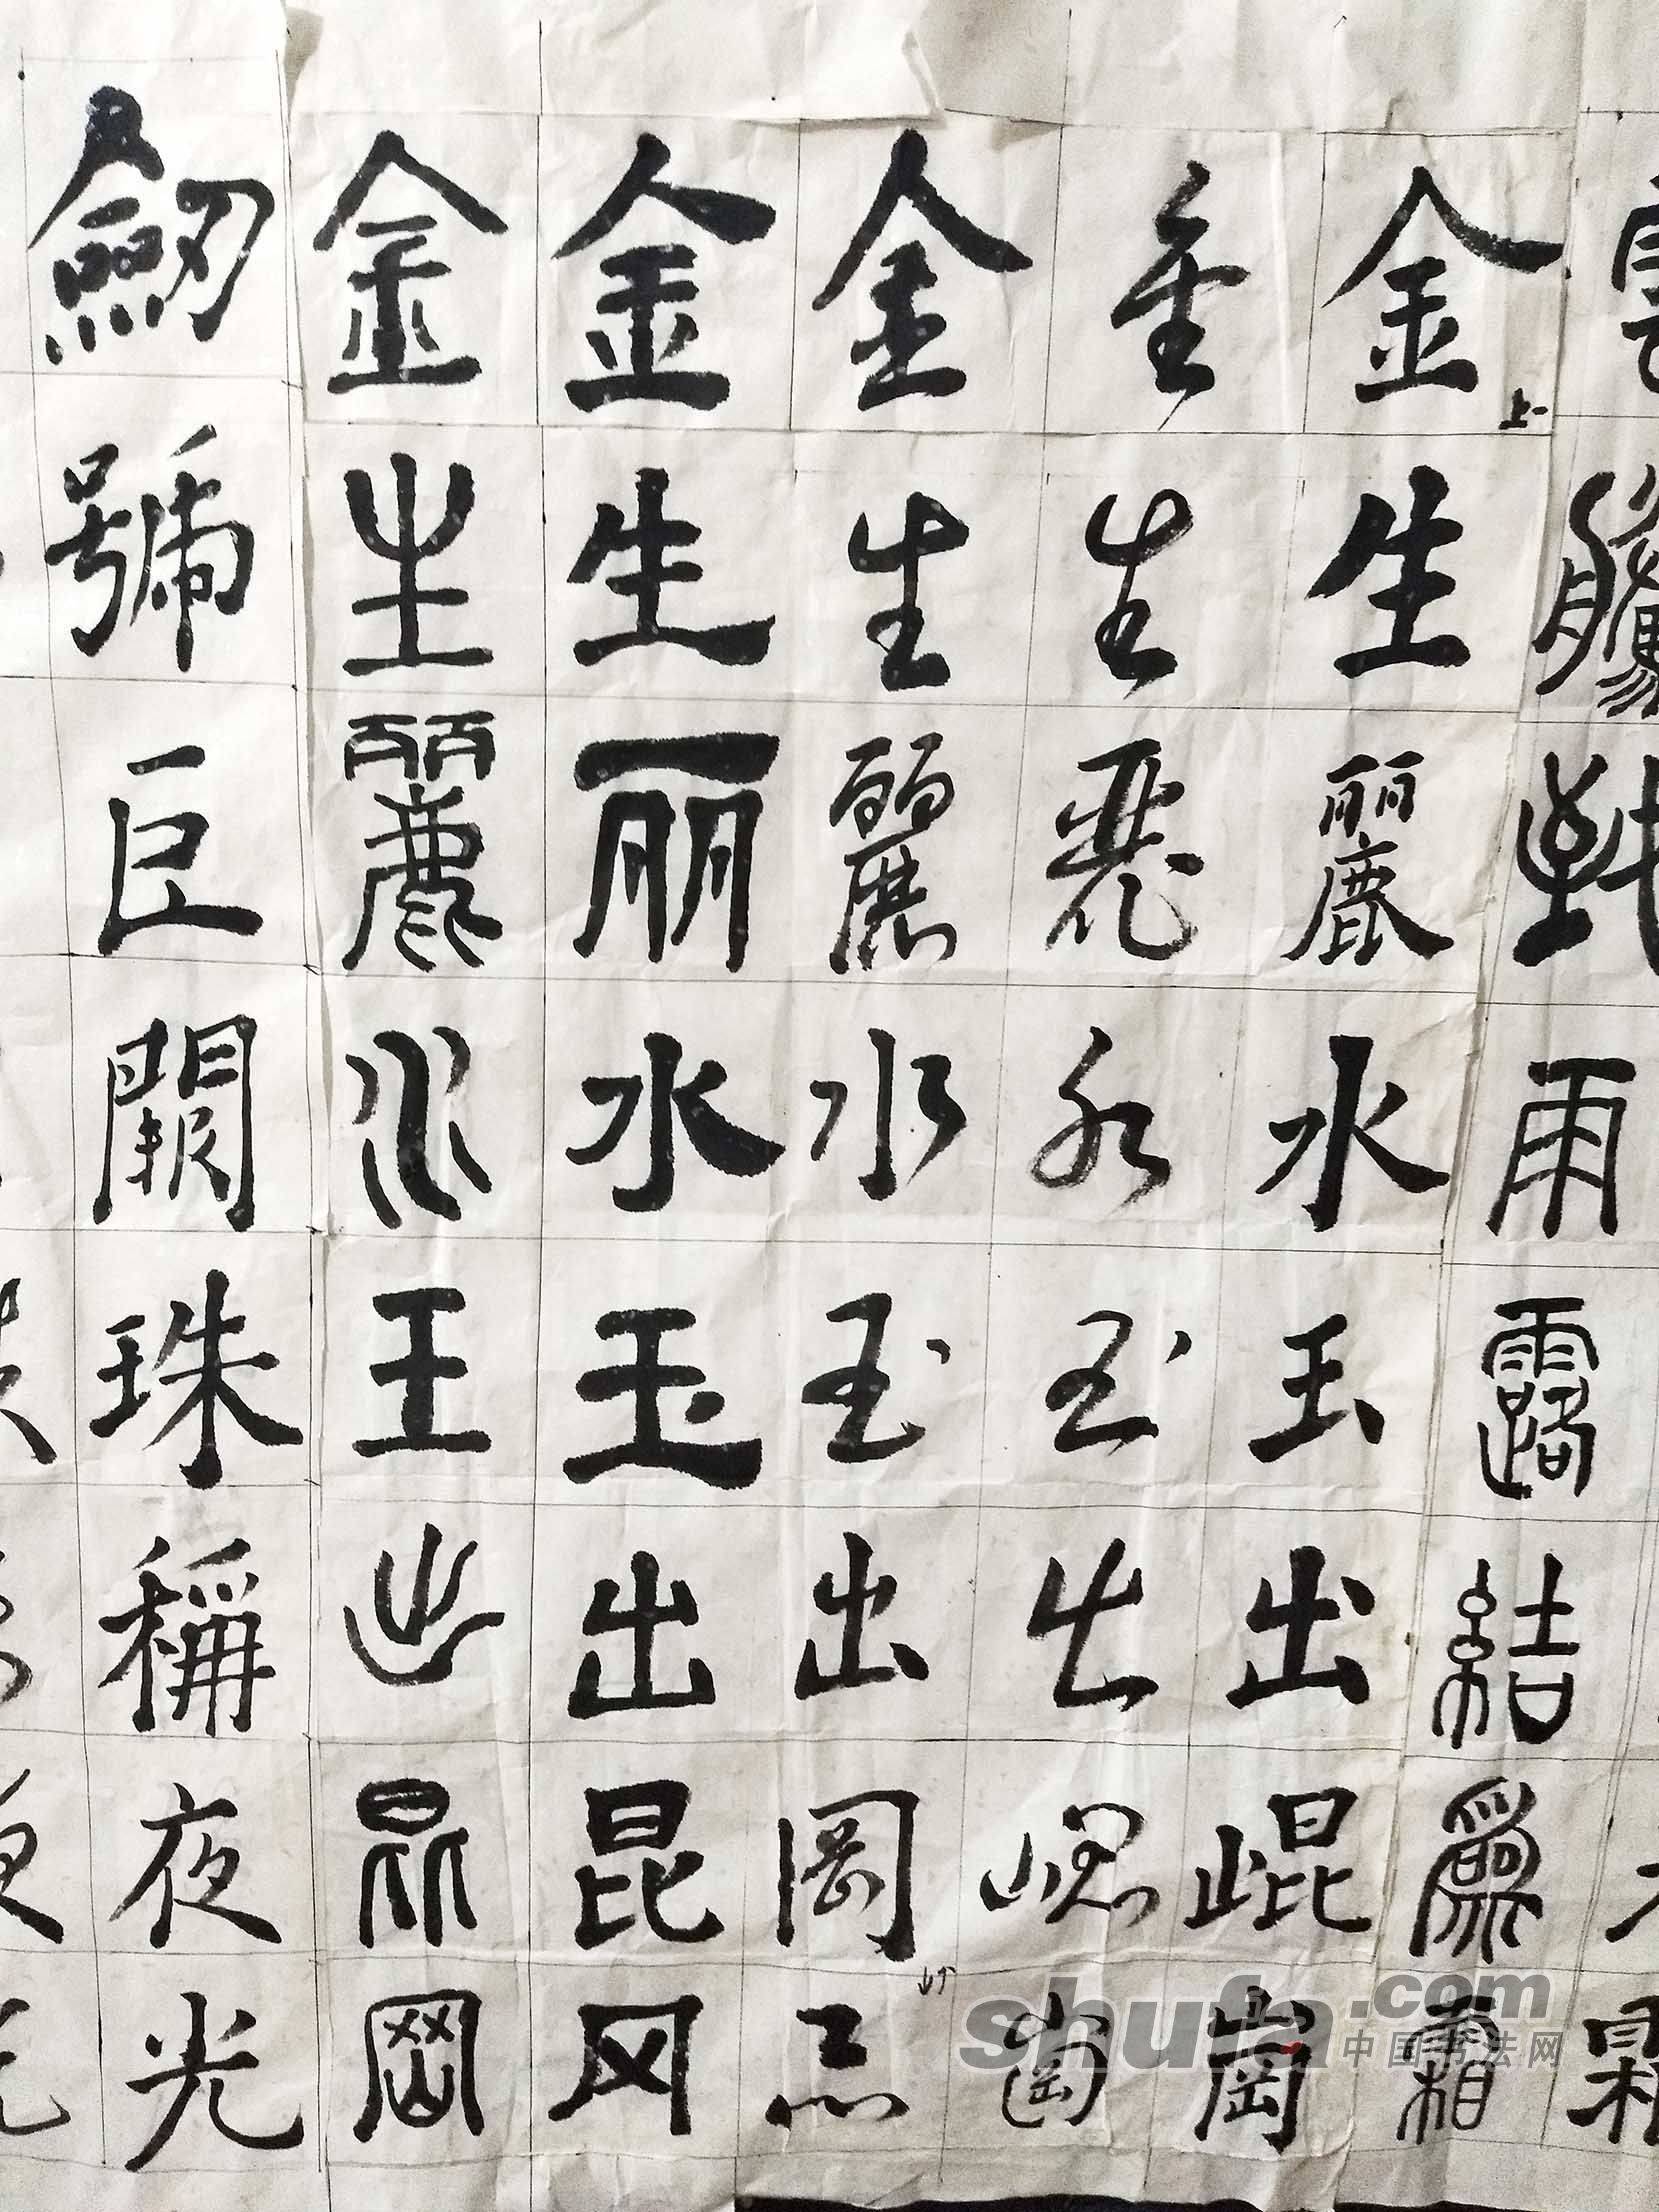 雲騰致雨露結為霜
金生麗水玉出崐崗
上一
金生麗水玉出崐崗
金生麗水玉出岡
↓↑
金生丽水玉出昆冈
金生麗水王出昆岡
劒號巨闕珠稱夜光
shufa.com
中国书法网